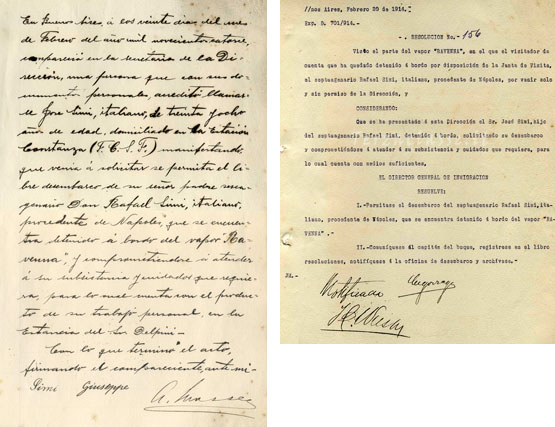 En Buenos Aires, á los veinte dias del mes
de Febrero del año mil novecientos catorce,
comparecio en la Secretaria de la Di-
rección, una persona que con sus do-
cumentos personales, acredito llamar-
se José Simi, italiano, de treinta y ocho
años de edad, domiciliado en la Estación
Constanza (F.C.S.F.) manifestando
que venia á solicitar se permita el li-
bre desembarco de su señor padre sexa-
genario Don Rafael Simi, italiano,
procedente de Napoles, que se encuen-
tra detenido á bordo del vapor "Ra-
venna", y comprometiendose á atender
á su subsistencia y cuidados que requie-
ra, para lo cual cuenta con el produc-
to de su trabajo personal, en la
Estancia del Sr. Delpini-
Con lo que terminó el acto,
firmando el compareciente, ante mi-
Simi Giuseppe
//nos Aires, Febrero 20 de 1914.-
Exp. S. 701/914.-
-. RESOLUCION No.- 156
Visto el parte del vapor "RAVENNA", en el que el visitador da
cuenta que ha quedado detenido á bordo por disposición de la Junta de Visita,
el septuagenario Rafael Simi, italiano, procedente de Nápoles, por venir solo
y sin permiso de la Dirección, y
CONSIDERANDO:
Que se ha presentado á esta Dirección el Sr. José Simi, hijo
del septuagenario Rafael Simi, detenido á bordo, solicitando su desembarco
y comprometiéndose á atender á su subsistencia y cuidados que requiera, para
lo cual cuenta con medios suficientes,
EL DIRECTOR GENERAL DE INMIGRACION
RESUELVE:
I.-Permitase el desembarco del septuagenario Rafael Simi, ita-
liano, procedente de Nápoles, que se encuentra detenido á bordo del vapor "RA-
VENNA".-
II.-Comuniquese al capitán del buque, registrese en el libro
resoluciones, notifiquese á la oficina de desembarco y archivese.-
Notificado